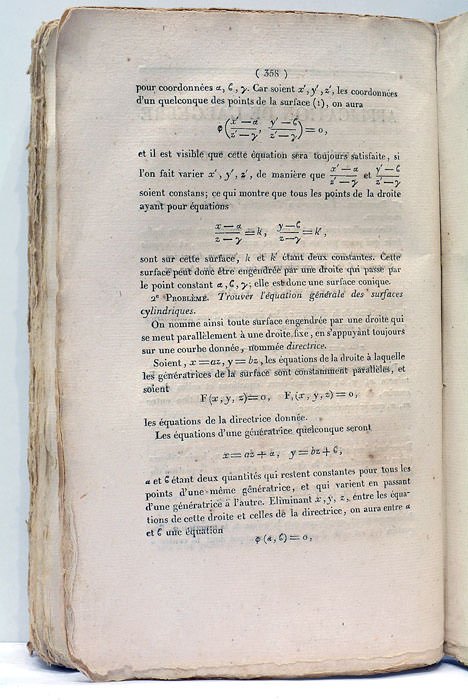 ( 358 )
pour coordonnées α, ϐ, γ. Car soient x', y', z', les coordonnées
d'un quelconque des points de la surface (1), on aura
φ((x' — α)/(z' — γ), (y' — ϐ)/(z' — γ)) = 0,
et il est visible que cette équation sera toujours satisfaite, si
l'on fait varier x', y', z', de manière que (x' — α)/(z' — γ) et (y' — ϐ)/(z' — γ)
soient constans; ce qui montre que tous les points de la droite
ayant pour équations
(x — α)/(z — γ) = k, (y — ϐ)/(z — γ) = k',
sont sur cette surface, k et k' étant deux constantes. Cette
surface peut donc être engendrée par une droite qui passe par
le point constant α, ϐ, γ; elle est donc une surface conique.
2e PROBLÈME. Trouver l'équation générale des surfaces
cylindriques.
On nomme ainsi toute surface engendrée par une droite qui
se meut parallèlement à une droite fixe, en s'appuyant toujours
sur une courbe donnée, nommée directrice.
Soient, x = az, y = bz, les équations de la droite à laquelle
les génératrices de la surface sont constamment parallèles, et
soient
F(x, y, z) = 0, F,(x, y, z) = 0,
les équations de la directrice donnée.
Les équations d'une génératrice quelconque seront
x = az + α, y = bz + ϐ,
α et ϐ étant deux quantités qui restent constantes pour tous les
points d'une même génératrice, et qui varient en passant
d'une génératrice à l'autre. Eliminant x, y, z, entre les équa-
tions de cette droite et celles de la directrice, on aura entre α
et ϐ une équation
φ (α, ϐ) = 0,